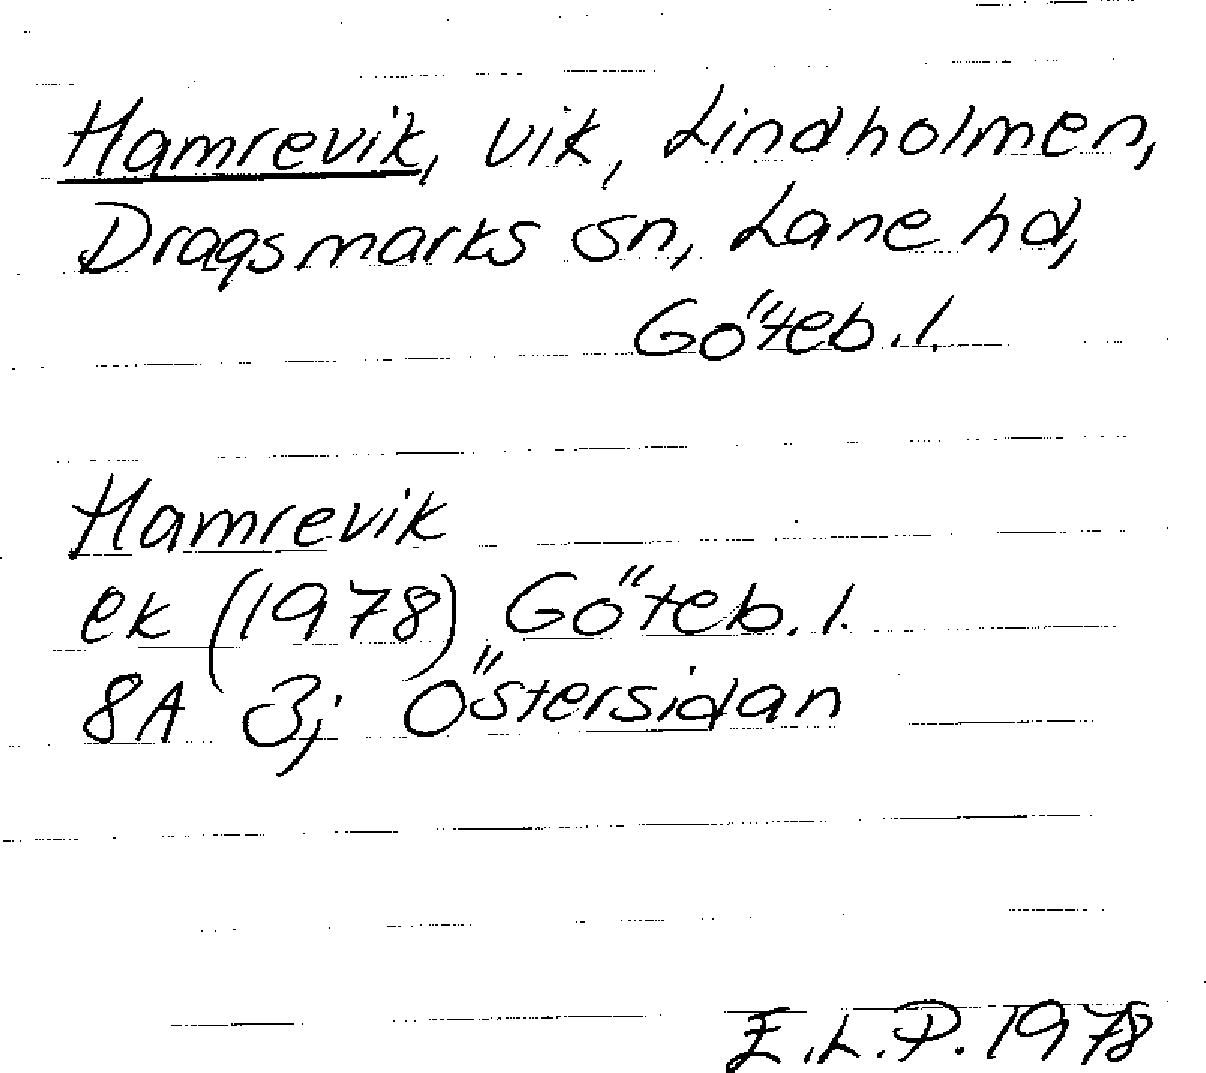 Hamrevik, vik, Lindholmen,
Dragsmarks sn, Lane hd,
Göteb. l.
Hamrevik
ek (1978) Göteb. l.
8A 3j Östersidan
E.L.P. 1978